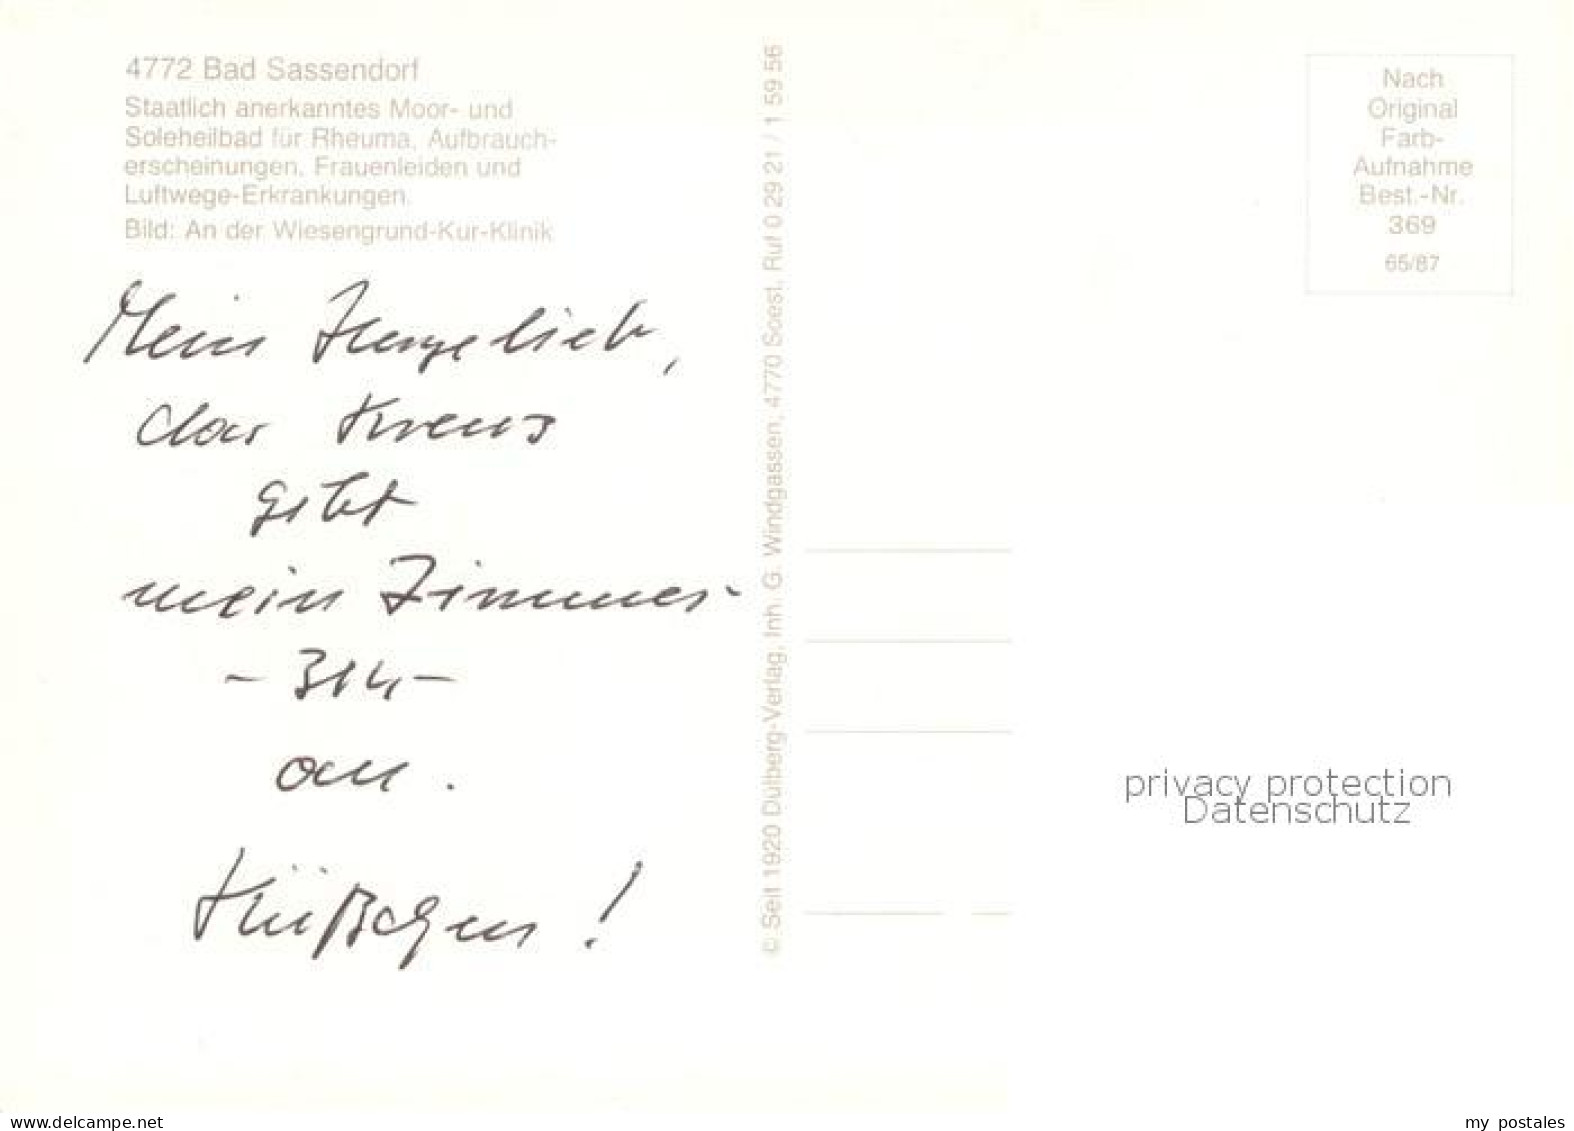 4772 Bad Sassendorf
Staatlich anerkanntes Moor- und
Soleheilbad für Rheuma, Aufbrauch-
erscheinungen, Frauenleiden und
Luftwege-Erkrankungen.
Bild: An der Wiesengrund-Kur-Klinik
Mein Herzelieb,
das Kreuz
gibt
mein Zimmer
- 314 -
an.
Küßchen!
© Seit 1920 Dülberg-Verlag, Inh. G. Windgassen, 4770 Soest, Ruf 0 29 21 / 1 59 56
Nach
Original
Farb-
Aufnahme
Best.-Nr.
369
65/87
privacy protection
Datenschutz
my postales